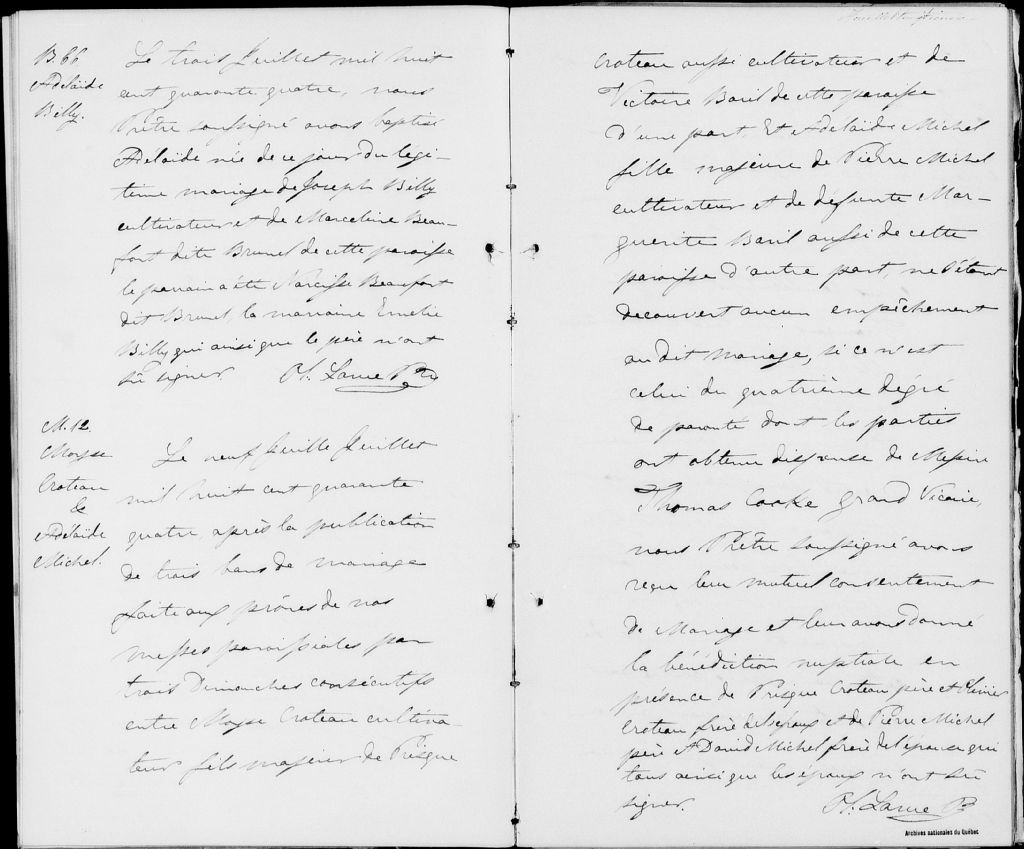 B. 66
Adelaïde
Billy.
Le trois Juillet mil huit
cent quarante quatre, nous
Prêtre soussigné avons baptisé
Adelaïde née de ce jour du légi-
time mariage de Joseph Billy
cultivateur et de Marceline Beau-
fort dite Brunel de cette paroisse
le parrain a été Narcisse Beaufort
dit Brunel, la marraine Emelie
Billy qui ainsi que le père n'ont
su signer. Ol. Larue Ptre
M. 12.
Moyse
Croteau
&
Adelaïde
Michel.
Le neuf Juillet
mil huit cent quarante
quatre, après la publication
de trois bans de mariage
faite aux prônes de nos
messes paroissiales par
trois Dimanches consécutifs
entre Moyse Croteau cultiva
teur fils majeur de Prisque
Feuillet
Croteau aussi cultivateur et de
Victoire Baril de cette paroisse
d'une part, Et Adelaïde Michel
fille majeure de Pierre Michel
cultivateur et de défunte Mar-
guerite Baril aussi de cette
paroisse d'autre part, ne s'étant
decouvert aucun empêchement
au dit mariage, si ce n'est
celui du quatrième dégré
de parenté dont les parties
ont obtenu dispense de Messire
Thomas Cooke Grand Vicaire,
nous Prêtre soussigné avons
reçu leur mutuel consentement
de Mariage et leur avons donné
la bénédiction nuptiale en
présence de Prisque Croteau père et Olivier
Croteau frère de l'époux et de Pierre Michel
père et David Michel frère de l'épouse qui
tous ainsi que les époux n'ont su
signer. Ol. Larue P
Archives nationales du Québec